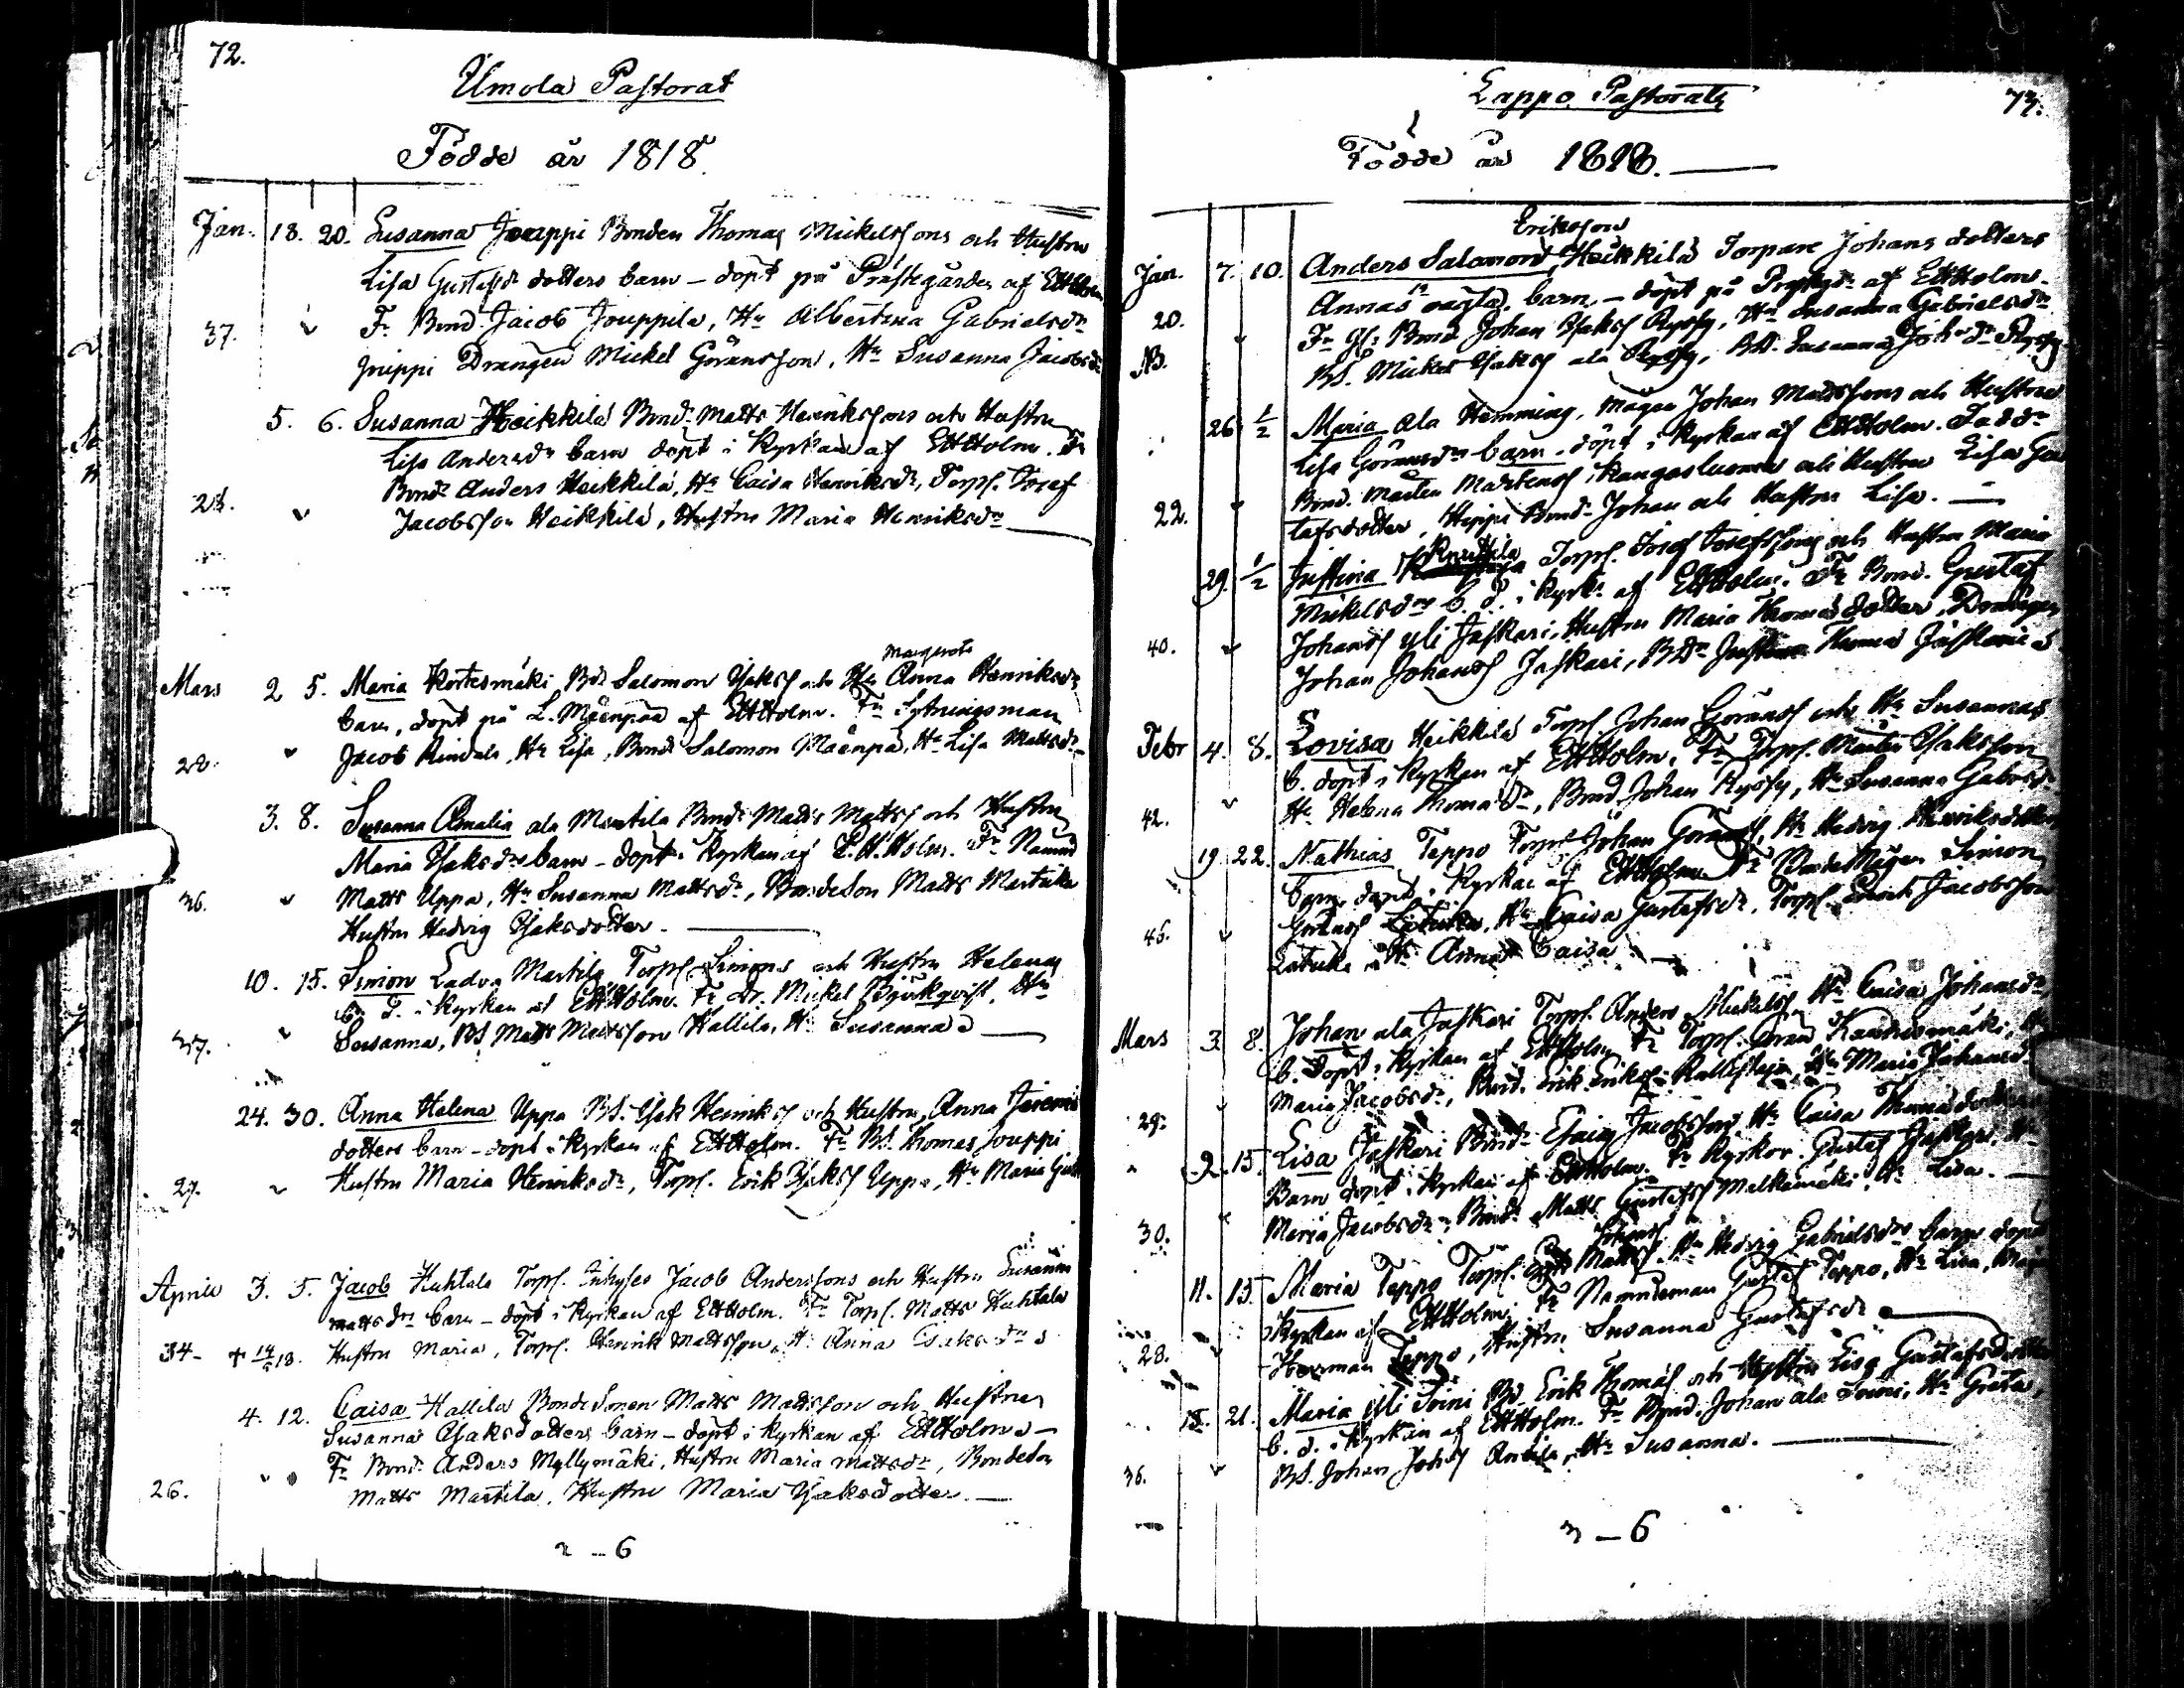 72.
Umola Pastorat
Födde år 1818.
Jan. 18. 20. Susanna Jouppi Bonden Thomas Mickelssons och Hustru
Lisa Gustafs dotters barn – döpt på Prästegården af EHHolm
Fr Bond. Jacob Jouppila, Hu Albertina Gabrielsdr
37. Drängen Mickel Göransson, Hu Susanna Jacobsdr
5. 6. Susanna Heikkilä Bond. Matts Henrikssons och Hustru
Lisa Andersdr barn döpt i Kyrkan af EHHolm. Fr
Bond. Anders Heikkilä, Hu Caisa Henriksdr, Torp. Josef
28. Jacobsson Heikkilä, Hustru Maria Henriksdr
Margareta
Mars 2 5. Maria Kortesmäki Bd. Salomon Isaks och Hu Anna Henriksdr
barn, döpt på L. Mäenpää af EHHolm. Fr Sytningsman
28. Jacob Rindala, Hu Lisa, Bond. Salomon Mäenpä, Hu Lisa Mattsdr
3. 8. Susanna Amalia ala Martila Bond. Matts Matts och Hustru
Maria Isaksdrs barn – döpt i Kyrkan af E.H.Holm. Fr Nämnd
36. Matts Uppa, Hu Susanna Mattsdr, Bondeson Matts Martila
Hustru Hedvig Isaksdotter.
10. 15. Simon Martila Torp. Simons och Hustru Helenas
b. d. i Kyrkan af EHHolm. Fr Dr. Mickel Björkqvist, Hu
37. Susanna, BS Matts Mattsson Hallila, Hu Susanna
24. 30. Anna Helena Uppa BS. Isak Henriks och Hustru Anna
dotters barn – döpt i Kyrkan af EHHolm. Fr BS. Thomas Jouppi
27. Hustru Maria Henriksdr, Torp. Erik Isaks Uppa, Hu Maria
April 3. 5. Jacob Huhtala Torp. Inhyses Jacob Anderssons och Hustru Susanna
Mattsdrs barn – döpt i Kyrkan af EHHolm. Fr Torp. Matts Huhtala
34 – + 14/5 18. Hustru Maria, Torp. Henrik Mattsson, Hu Anna Isaksdr
4. 12. Caisa Hallila BondeSonen Matts Mattsson och Hustrus
Susanna Isaksdotters barn – döpt i Kyrkan af EHHolm
Fr Bond. Anders Myllymäki, Hustru Maria Mattsdr, Bondeson
26. Matts Martila, Hustru Maria Isaksdotter. –
– 6
Lappo Pastorat
73.
Födde år 1818.
Eriksson
Jan. 7. 10. Anders Salomon Heikkilä Torpare Johans dotters
Annas oägta barn, – döpt på af EHHolm.
20. Fr Bond Johan Isaks Ryssy, Hu Susanna Gabrielsdr
BS. Mickel Isaks ala Ryssy, BD. Susanna Joh.dr Ryssy
26 1/2 Maria ala Hemming, Mågen Johan Mattssons och Hustru
Lisa Göransdrs barn. döpt i Kyrkan af EHHolm.
Bond. Mårten Mårtens Kangasluoma och Hustru Lisa Gus
22. tafsdotter, Bond. Johan och Hustru Lisa. –
29. 1/2 Justina Torp. Josef Josefssons och Hustru Maria
Mickelsdrs b. d. i Kyrk. af EHHolm. Fr Bond. Gustaf
40. Johans yli Jaskari, Hustru Maria Thomasdotter, Drängen
Johan Johans Jaskari, BDr Justina Jaskari
Febr 4. 8. Lovisa Heikkilä Torp. Johan Görans och Hu Susannas
b. döpt i Kyrkan af EHHolm. Fr Torp. Isaksson
42. Hu Helena Thomasdr, Bond. Johan Ryssy, Hu Susanna Gabrsdr
19. 22. Mathias Teppo Torp. Johan Görans, Hu Hedvig Henriksdotters
barn döpt i Kyrkan af EHHolm Fr BondeMågen Simon
46. Görans Latukka, Hu Caisa Gustafsdr, Torp. Jacobsson
Latukka, Hu Anna Caisa.
Mars 3 8. Johan ala Jaskari Torp. Anders Mickels. Hu Caisa Johansdr
b. döpt i Kyrkan af EHHolm Fr Torp. Göran
29. Maria Jacobsdr, Bond. Erik Eriks Hu Maria Johansdr
9. 15. Lisa Jaskari Bond. Esaias Jacobsson Hu Caisa Thomasdotters
Barn döpt i Kyrkan af EHHolm. Fr Kyrkov. Gustaf Jaskari, Hu
30. Maria Jacobsdr, Bond. Matts Gustafs Melkamäki, Hu Lisa.
Johans
11. 15. Maria Teppo Torp. Matts. Hu Hedvig Gabrielsdrs barn döpt
i Kyrkan af EHHolm. Fr Nämndeman Gustaf Teppo, Hu Lisa,
28. Herman Teppo, Hustru Susanna Gustafsdr
15. 21. Maria yli Soini BS. Erik Thomas och Hustru Lisa Gustafsdotters
b. d. i Kyrkan af EHHolm. Fr Bond. Johan ala Soini, Hu Greta,
36. BS. Johan Johs Antila, Hu Susanna.
– 6